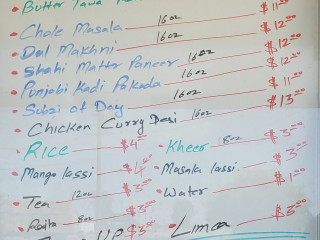 Butter Tawa $11.00
Chole Masala 16oz $12.00
Dal Makhni 16oz $12.00
Shahi Matter Paneer 16oz $12.00
Punjabi Kadi Pakoda 16oz $11.00
Subzi of Day 16oz $13.00
Chicken Curry Desi 16oz
RICE $4.00 Kheer 8oz $3.00
Mango lassi $4.00 Masala lassi $3.00
Tea 12oz $3.00 Water $1.00
Raita 8oz $3.00 Limca $3.00
UP $3.00